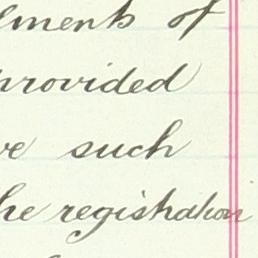 lments of
provided
ve such
he registration